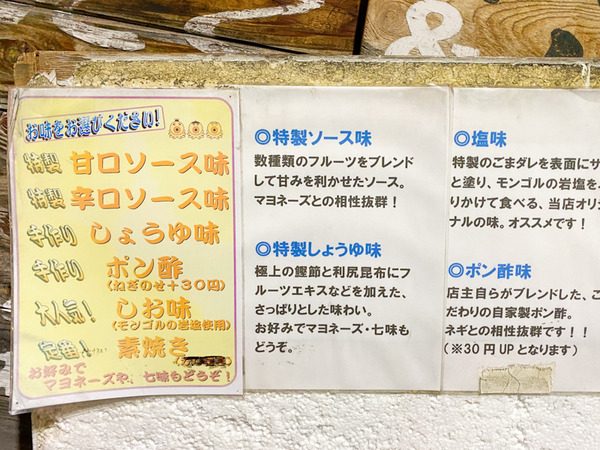 &
お味をお選びください!
特製 甘口ソース味
特製 辛口ソース味
手作り しょうゆ味
手作り ポン酢
(ねぎのせ+30円)
大人気! しお味
(モンゴルの岩塩使用)
定番! 素焼き
お好みで
マヨネーズや、七味もどうぞ!
◎特製ソース味
数種類のフルーツをブレンド
して甘みを利かせたソース。
マヨネーズとの相性抜群!
◎特製しょうゆ味
極上の鰹節と利尻昆布にフ
ルーツエキスなどを加えた、
さっぱりとした味わい。
お好みでマヨネーズ・七味も
どうぞ。
◎塩味
特製のごまダレを表面にサ
と塗り、モンゴルの岩塩を
りかけて食べる、当店オリジ
ナルの味。オススメです!
◎ポン酢味
店主自らがブレンドした、こ
だわりの自家製ポン酢。
ネギとの相性抜群です!!
(※30円UPとなります)